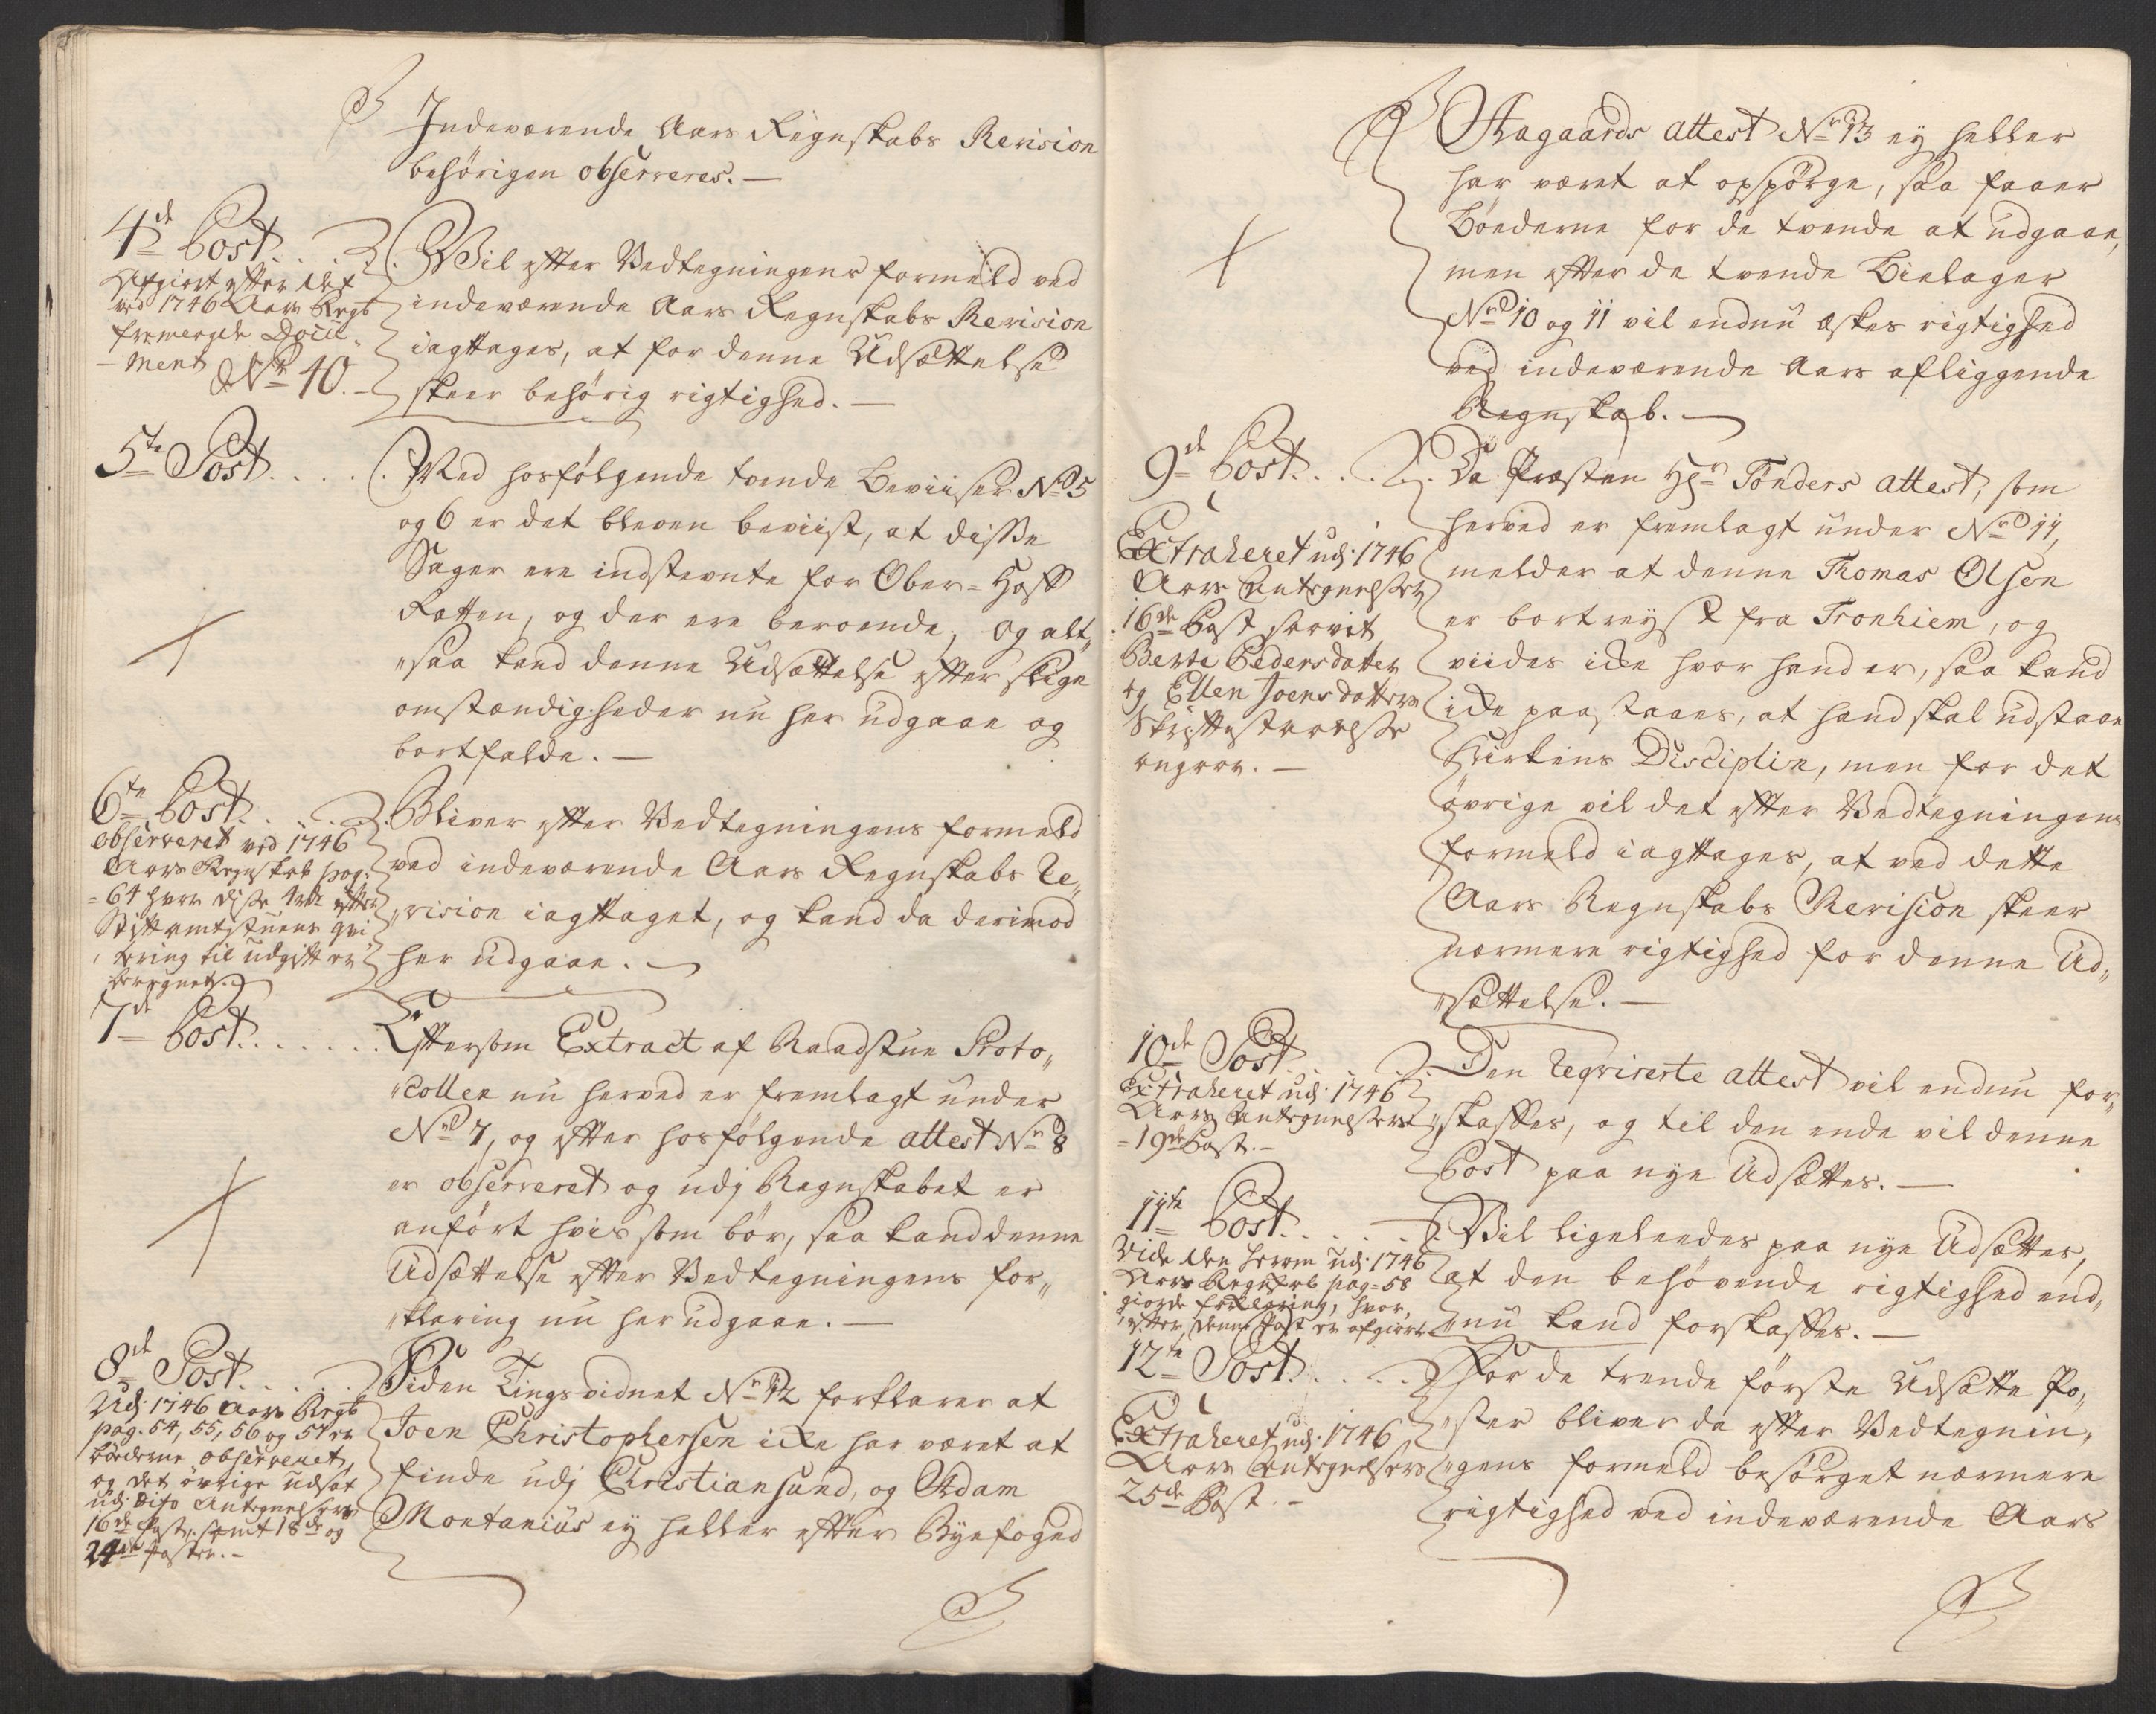 Indeværende Aars Regnskabs Revision
behörigen observeres. —
4de Post . . .
Afgiort efter det
ved 1746 Aars Regsb
fremlagde Docu-
ment No 10. -
Vil efter Vedtegningens formeld ved
indeværende Aars Regnskabs Revision
iagttages, at for denne Udsættelse
skeer behörig rigtighed. —
5te Post . . . .
Med hosfölgende tvende Beviiser No 5
og 6 er det bleven beviist, at disse
Sager ere indstevnte for Ober-Hoff
Retten, og der ere beroende, og alt„
„saa kand denne Udsættelse efter slige
omstændigheder nu her udgaae og
bortfalde. —
6te Post . . .
observeret ved 1746
Aars Regnskab pag:
64 hvor disse 4 rdr efter
Stiftamtstuens qvi
tering til udgift er
beregnet.
Bliver efter Vedtegningens formeld
ved indeværende Aars Regnskabs Re„
„vision iagttaget, og kand da derimod
her udgaae. —
7de Post . . . . . .
Eftersom Extract af Raadstue Proto„
„collen nu herved er fremlagt under
No 7, og efter hosfölgende attest No 8
er observeret og udj Regnskabet er
anfört hvis som bör, saa kand denne
Udsættelse efter Vedtegningens for„
„klaring nu her udgaae. —
8de Post . . . .
Udj 1746 Aars Regsb
pag. 54, 55, 56 og 57 er
bönderne observeret,
og det övrige udsat
udj dito Antegnelsers
16de Post, samt 18de og
24de Poster. -
Siden Tingsvidnet No 12 forklarer at
Joen Christophersen icke har været at
finde udj Christiansund, og Adam
Montanius ey heller efter Byefoged
Aagaards attest No 13 ey heller
har været at opspörge, saa faaer
Bönderne for de tvende at udgaae,
men efter de tvende Bielager
No 10 og 11 vil endnu æskes rigtighed
ved indeværende Aars afliggende
Regnskab. —
9de Post . . . .
Extraheret udj 1746
Aars Antegnelsers
16de Post hvorvit
Berte Pedersdatter
og Ellen Joensdatters
Skriftestaaelse
angaar. —
Da Præsten Hr Tönders attest, som
herved er fremlagt under No 11,
melder at denne Thomas Olsen
er bortreyst fra Tronhiem, og
viides icke hvor hand er, saa kand
icke paastaaes, at hand skal udstaae
Kirkens Disciplin, men for det
övrige vil det efter Vedtegningens
formeld iagttages, at ved dette
Aars Regnskabs Revision skeer
nærmere rigtighed for denne Ud„
„sættelse. —
10de Post
Extraheret udj 1746
Aars Antegnelsers
19de Post. -
Den reqvirerte attest vil endnu for„
„skaffes, og til den ende vil denne
Post paa nye Udsættes. —
11te Post . . . .
Vide den herom udj 1746
Aars Regnskb pag. 58
giorde forklaring, hvor„
efter denne Post er afgiort
Vil ligeleedes paa nye Udsættes,
at den behövende rigtighed end„
„nu kand forskaffes. —
12te Post . . . .
Extraheret udj 1746
Aars Antegnelsers
25de Post. -
For de tvende förste Udsatte Po„
„ster bliver da efter Vedtegnin„
„gens formeld besörget nærmere
rigtighed ved indeværende Aars